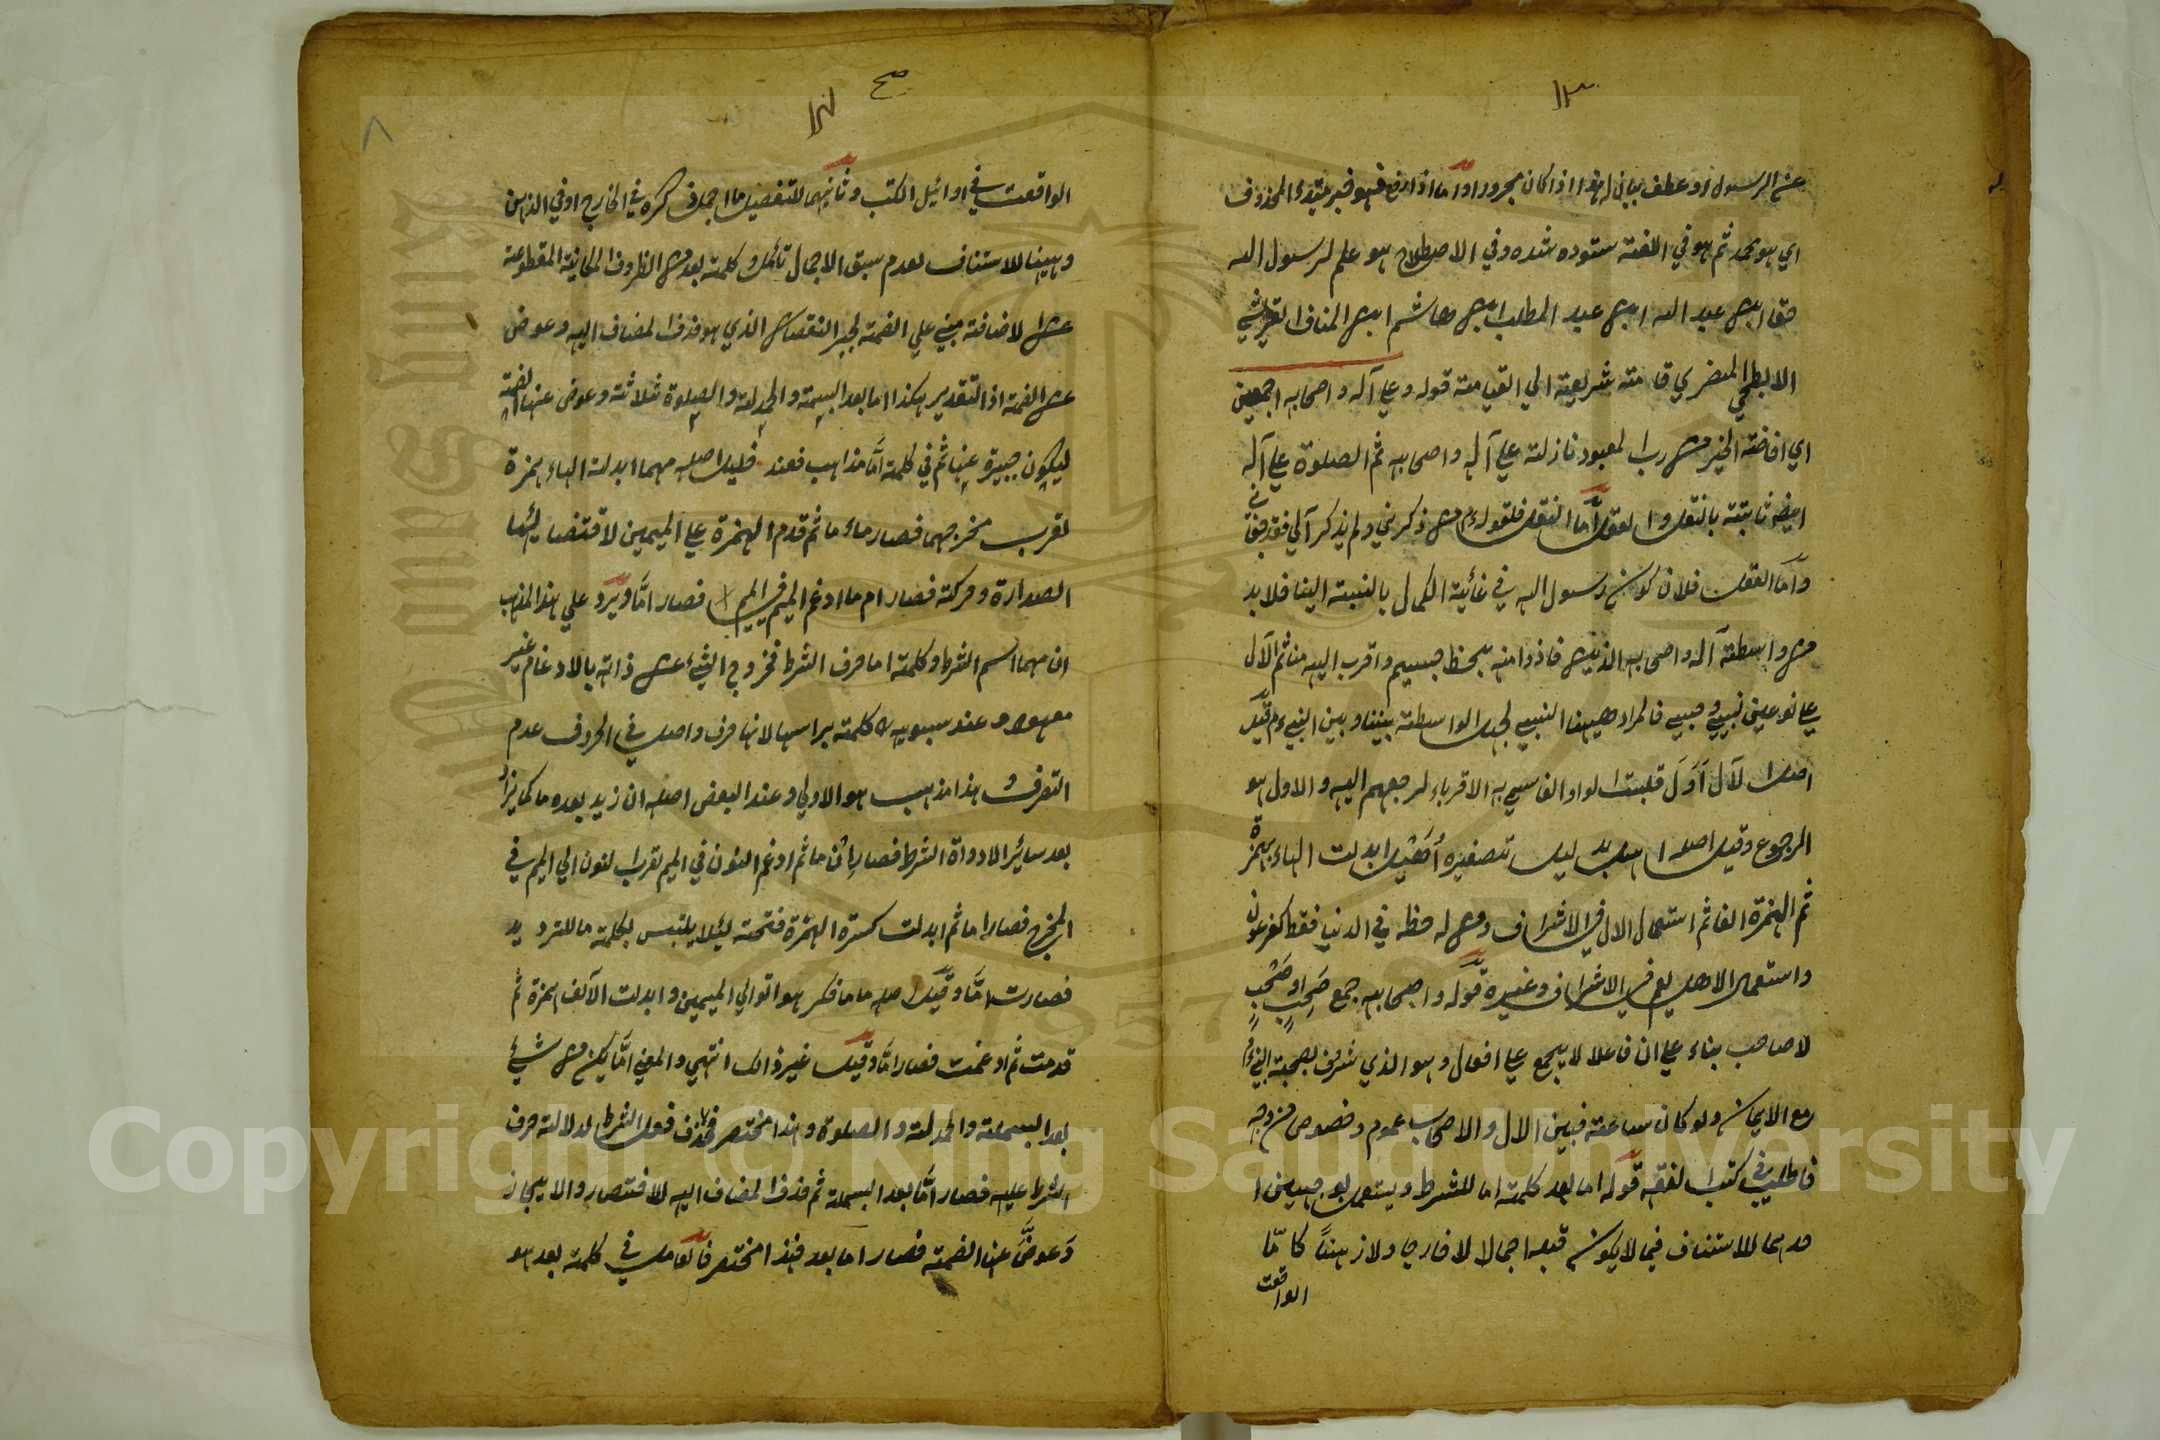 ١٣
عن الرسول او عطف بيان له هذا اذا كان مجرورا واما اذا رفع فهو خبر مبتدء المحذوف
اي هو محمد ثم هو في اللغة ستوده شده وفي الاصطلاح هو علم لرسول الله
حقا ابن عبد الله ابن عبد المطلب ابن هاشم ابن المناف القريشي
الابطحي المضري قامته شريعته الي القيامة قوله وعلي آله واصحابه اجمعين
اي افاضة الخير من رب المعبود نازلة علي آله واصحابه ثم الصلوة علي آله
ايضا ثابتة بالنقل والعقل اما النقل فلقوله م من ذكرني ولم يذكر آلي فقد
واما العقل فلان كون رسول الله في غائية الكمال بالنسبة الينا فلا بد
من واسطة آله واصحابه الذين فاذوا منه بحظ جسيم واقرب اليه منا ثم الآل
علي نوعين نسبي وحسبي فالمراد هيهنا النسبي لجعل الواسطة بيننا وبين النبي م قيل
اصل الآل اَوَل قلبت الواو الفا سمي به الاقرباء لرجعهم اليه والاول هو
الرجوع وقيل اصله اهل بدليل تصغيره اُهَيل ابدلت الهاء بهمزة
ثم الهمزة الفا ثم استعمال الال في الاشراف ومن له حظ في الدنيا فقط كفرعون
واستعمال الاهل يعم في الاشراف وغيره قوله واصحابه جمع صَحِبٍ او صَحْبٍ
لا صاحب بناء علي ان فاعلا لا يجمع علي افعال وهو الذي شرف بصحبة النبي م
مع الايمان ولو كان ساعة فبين الال والاصحاب عموم وخصوص من وجه
فاطلب في كتب الفقه قوله اما بعد كلمة اما للشرط ويستعمل بوجهين ا
حدهما للاستناف فيما لا يكون قبله اجمالا لا خارجا ولا ذهنا كامّا
الواقعة
صح
١٤
٨
الواقعت في اوائيل الكتب وثانيهما للتفصيل ما اجمل ذكره في الخارج او في الذهن
وهيهنا للاستناف لعدم سبق الاجمال تأمل وكلمة بعد من الظروف المكانية المقطوعة
عن الاضافة مبني علي الضمة لجبر النقصان الذي هو حذف المضاف اليه وعوض
عن الضمة اذ التقدير هكذا اما بعد البسمة والحمدلة والصلوة ثلاثة وعوض عنها الضمة
ليكون جبيرة عنها ثم في كلمة امّا مذاهب فعند خليل اصله مهما ابدلت الهاء همزة
لقرب مخرجهما فصار ماء ما ثم قدم الهمزة علي الميمين لاقتضائها
الصدارة وحركته فصار ام ما ادغم الميم في الميم فصار امّا ويرد علي هذا المذهب
ان مهما اسم الشرط وكلمة اما حرف الشرط فخروج الشيء عن ذاته بالادغام غير
معهود وعند سبويه كلمة براسها لانها حرف واصل في الحروف عدم
التصرف هذا مذهب هو الاولي وعند البعض اصله ان زيد بعده ما كما يزاد
بعد سائر الادواة الشرط فصار اِن ما ثم ادغم النون في الميم لقرب النون الي الميم في
المخرج فصار اما ثم ابدلت كسرة الهمزة فتحة ليئلا يلتبس بكلمة ما للترديد
فصارت امّا وقيل اصله ما ما فكره هو اتوالي الميمين وابدلت الآلف همزة ثم
قدمت ثم ادغمت فصار امّا وقيل غير ذالك انتهي والمعني امّا يكن من شيئ
بعد البسملة والحمدلة والصلوة وهذا مختصر فحذف فعل الشرط لدلالة حرف
الشرط عليه فصار امّا بعد البسملة ثم حذف المضاف اليه للاختصار والايجاز
وعوضَّ عنها الضمة فصار اما بعد فهذا مختصر فالعامل في كلمة بعد هو
Copyright © King Saud University
1957